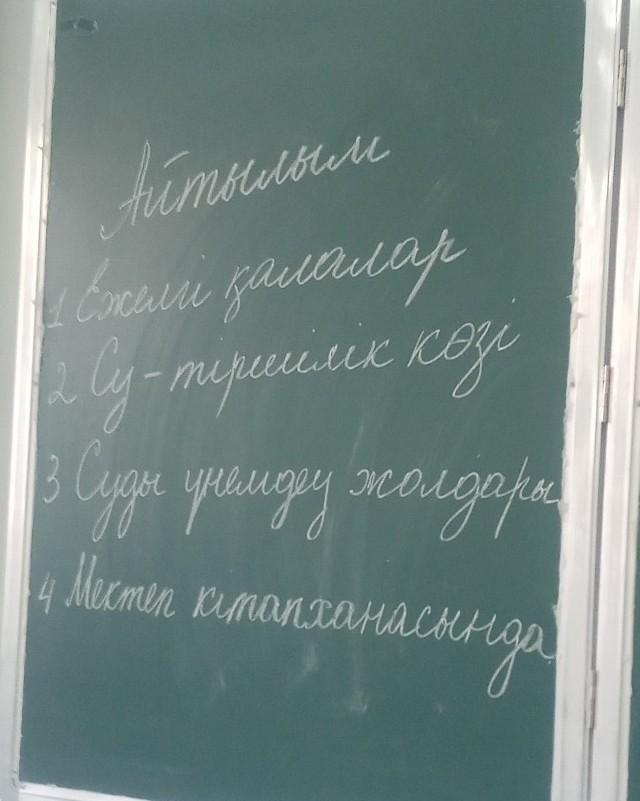 Айтылым
1 Ежелгі қалалар
2 Су - тіршілік көзі
3 Суды үнемдеу жолдары
4 Мектеп кітапханасында